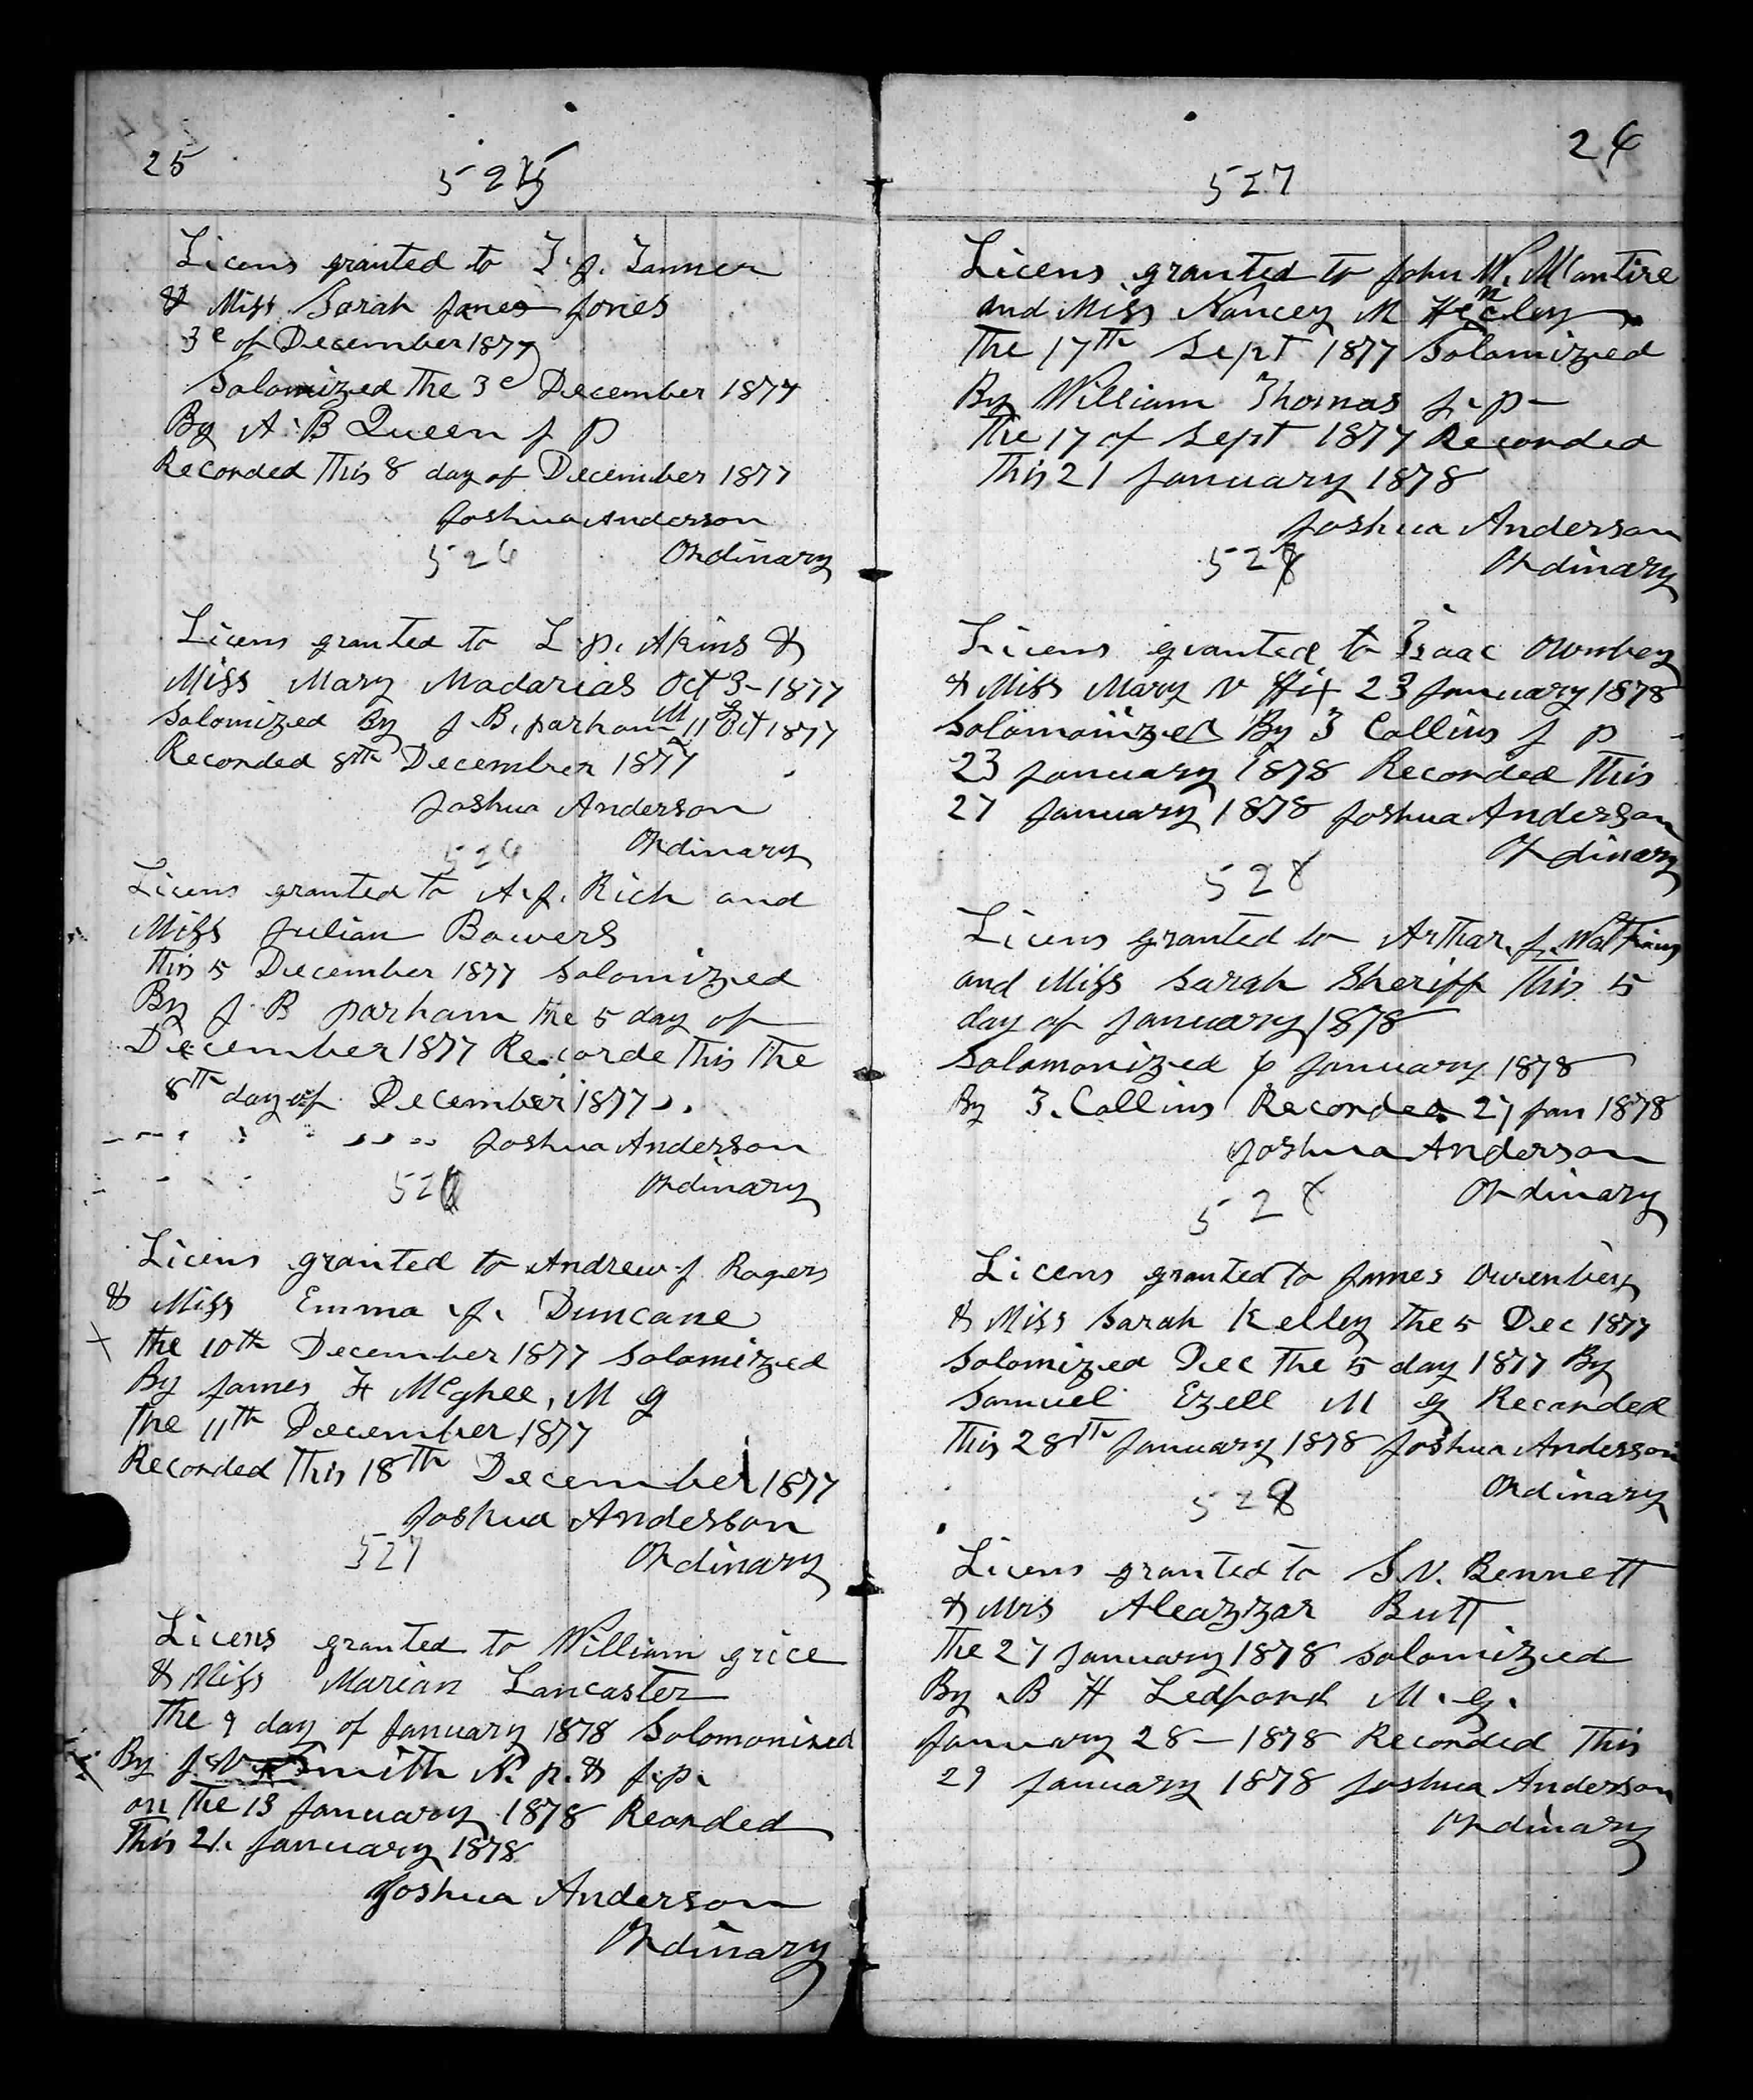 25
5215
Licens granted to T. J. Tanner
& Miss Sarah Janes Jones
3e of December 1877
Solomized The 3e December 1877
By A. B Queen J P
Recorded This 8 day of December 1877
Joshua Anderson
526 Ordinary
Licens granted to L. P. Akins &
Miss Mary Madarias Oct 3 - 1877
Solomized By J. B. Parham M G 11 Oct 1877
Recorded 8th December 1877
Joshua Anderson
526 Ordinary
Licens granted to A. J. Rich and
Miss Julian Bowers
this 5 December 1877 Solomized
By J. B Parham the 5 day of
December 1877 Recorde This The
8th day of December 1877
Joshua Anderson
526 Ordinary
Licens granted to Andrew J Rogers
& Miss Emma J. Duncane
the 10th December 1877 Solomized
By James H McGhee, M G
The 11th December 1877
Recorded This 18th December 1877
Joshua Anderson
527 Ordinary
Licens granted to William Grice
& Miss Marian Lancaster
The 9 day of January 1878 Solomonized
By J. Smith N. P. & J. P.
on The 13 January 1878 Reorded
This 21. January 1878
Joshua Anderson
Ordinary
26
527
Licens granted to John W. McAntire
and Miss Nancey M Henley
The 17th Sept 1877 Solomized
By William Thomas J. P -
The 17 of Sept 1877 Recorded
This 21 January 1878
Joshua Anderson
528 Ordinary
Licens granted to Isaac Ownbey
& Miss Mary V Hix 23 January 1878
Solomonized By 3 Collins J P
23 January 1878 Recorded This
27 January 1878 Joshua Anderson
Ordinary
528
Licens granted to Arthar. J. Watkins
and Miss Sarah Sheriff This 5
day of January 1878
Solomonized 6 January 1878
By 3. Collins Recorded 27 Jan 1878
Joshua Anderson
528 Ordinary
Licens granted to James Owenbey
& Miss Sarah Kelley The 5 Dec 1877
Solomized Dec The 5 day 1877 By
Samuel Ezell M G Recorded
This 28th January 1878 Joshua Anderson
528 Ordinary
Licens granted to S. V. Bennett
& Mrs Aleazizar Butt
The 27 January 1878 Solomized
By B H Ledford M. G.
January 28 - 1878 Recorded This
29 January 1878 Joshua Anderson
Ordinary